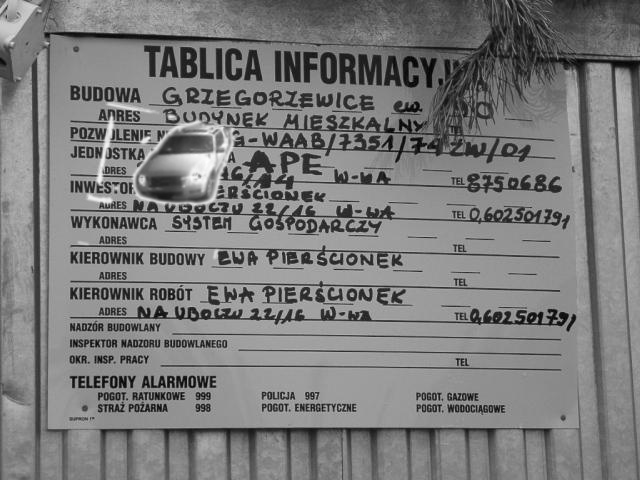 TABLICA INFORMACYJNA
BUDOWA GRZEGORZEWICE ew.
ADRES BUDYNEK MIESZKALNY
POZWOLENIE G-WAAB/7351/74 ZW/01
JEDNOSTKA APE
W-WA TEL 8750686
INWESTOR PIERŚCIONEK
ADRES NA UBOCZU 22/16 W-WA TEL 0,602501791
WYKONAWCA SYSTEM GOSPODARCZY
ADRES TEL
KIEROWNIK BUDOWY EWA PIERŚCIONEK
ADRES TEL
KIEROWNIK ROBÓT EWA PIERŚCIONEK
ADRES NA UBOCZU 22/16 W-WA TEL 0,602501791
NADZÓR BUDOWLANY
INSPEKTOR NADZORU BUDOWLANEGO
OKR. INSP. PRACY TEL
TELEFONY ALARMOWE
POGOT. RATUNKOWE 999 POLICJA 997 POGOT. GAZOWE
STRAŻ POŻARNA 998 POGOT. ENERGETYCZNE POGOT. WODOCIĄGOWE